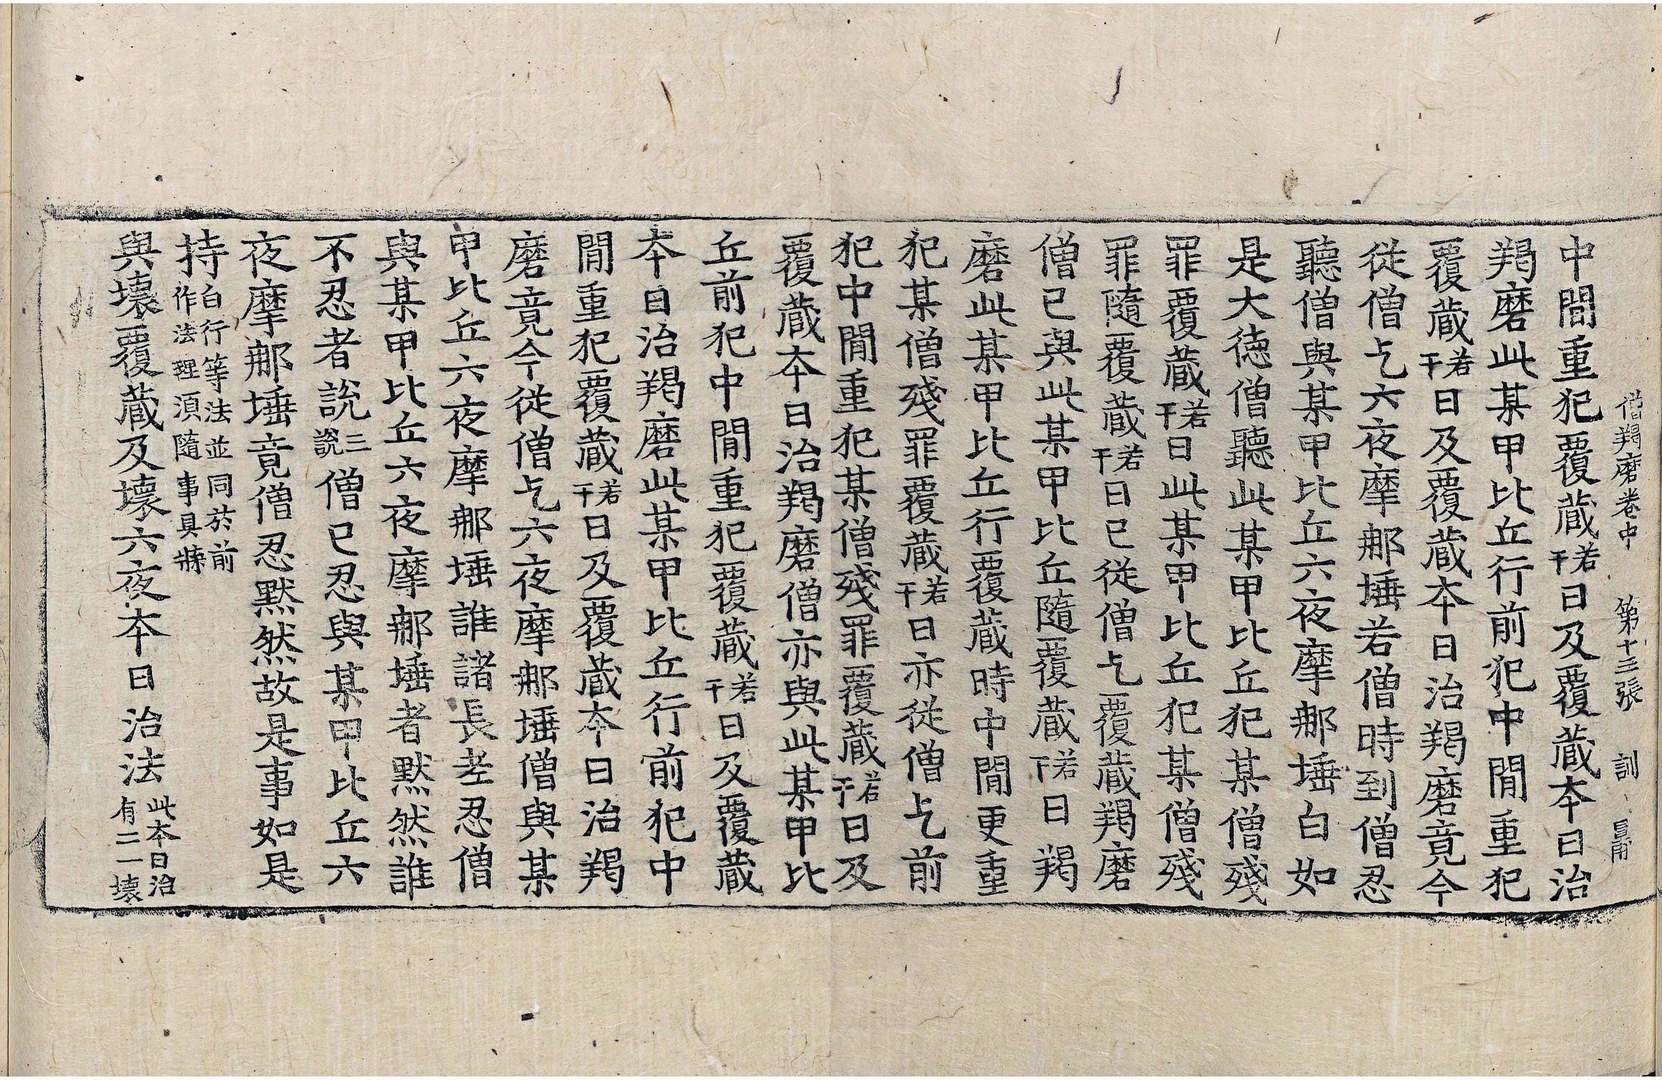 僧羯磨卷中 第十三張 訓
中間重犯覆蔵若干日及覆蔵夲日治
羯磨此某甲比丘行前犯中間重犯
覆蔵若干日及覆蔵夲日治羯磨竟今
從僧乞六夜摩那埵若僧時到僧忍
聽僧與某甲比丘六夜摩那埵白如
是大德僧聽此某甲比丘犯某僧殘
罪覆蔵若干日此某甲比丘犯某僧殘
罪隨覆蔵若干日已從僧乞覆蔵羯磨
僧已與此某甲比丘隨覆蔵若干日羯
磨此某甲比丘行覆蔵時中間更重
犯某僧殘罪覆蔵若干日亦從僧乞前
犯中間重犯某僧殘罪覆蔵若干日及
覆蔵夲日治羯磨僧亦與此某甲比
丘前犯中間重犯覆蔵若干日及覆蔵
夲日治羯磨此某甲比丘行前犯中
間重犯覆蔵若干日及覆蔵夲日治羯
磨竟今從僧乞六夜摩那埵僧與某
甲比丘六夜摩那埵誰諸長老忍僧
與某甲比丘六夜摩那埵者默然誰
不忍者說三說僧已忍與某甲比丘六
夜摩那埵竟僧忍默然故是事如是
持白行等法並同於前作法理須隨事具牒
與壞覆蔵及壞六夜夲日治法此夲日治有二一壞